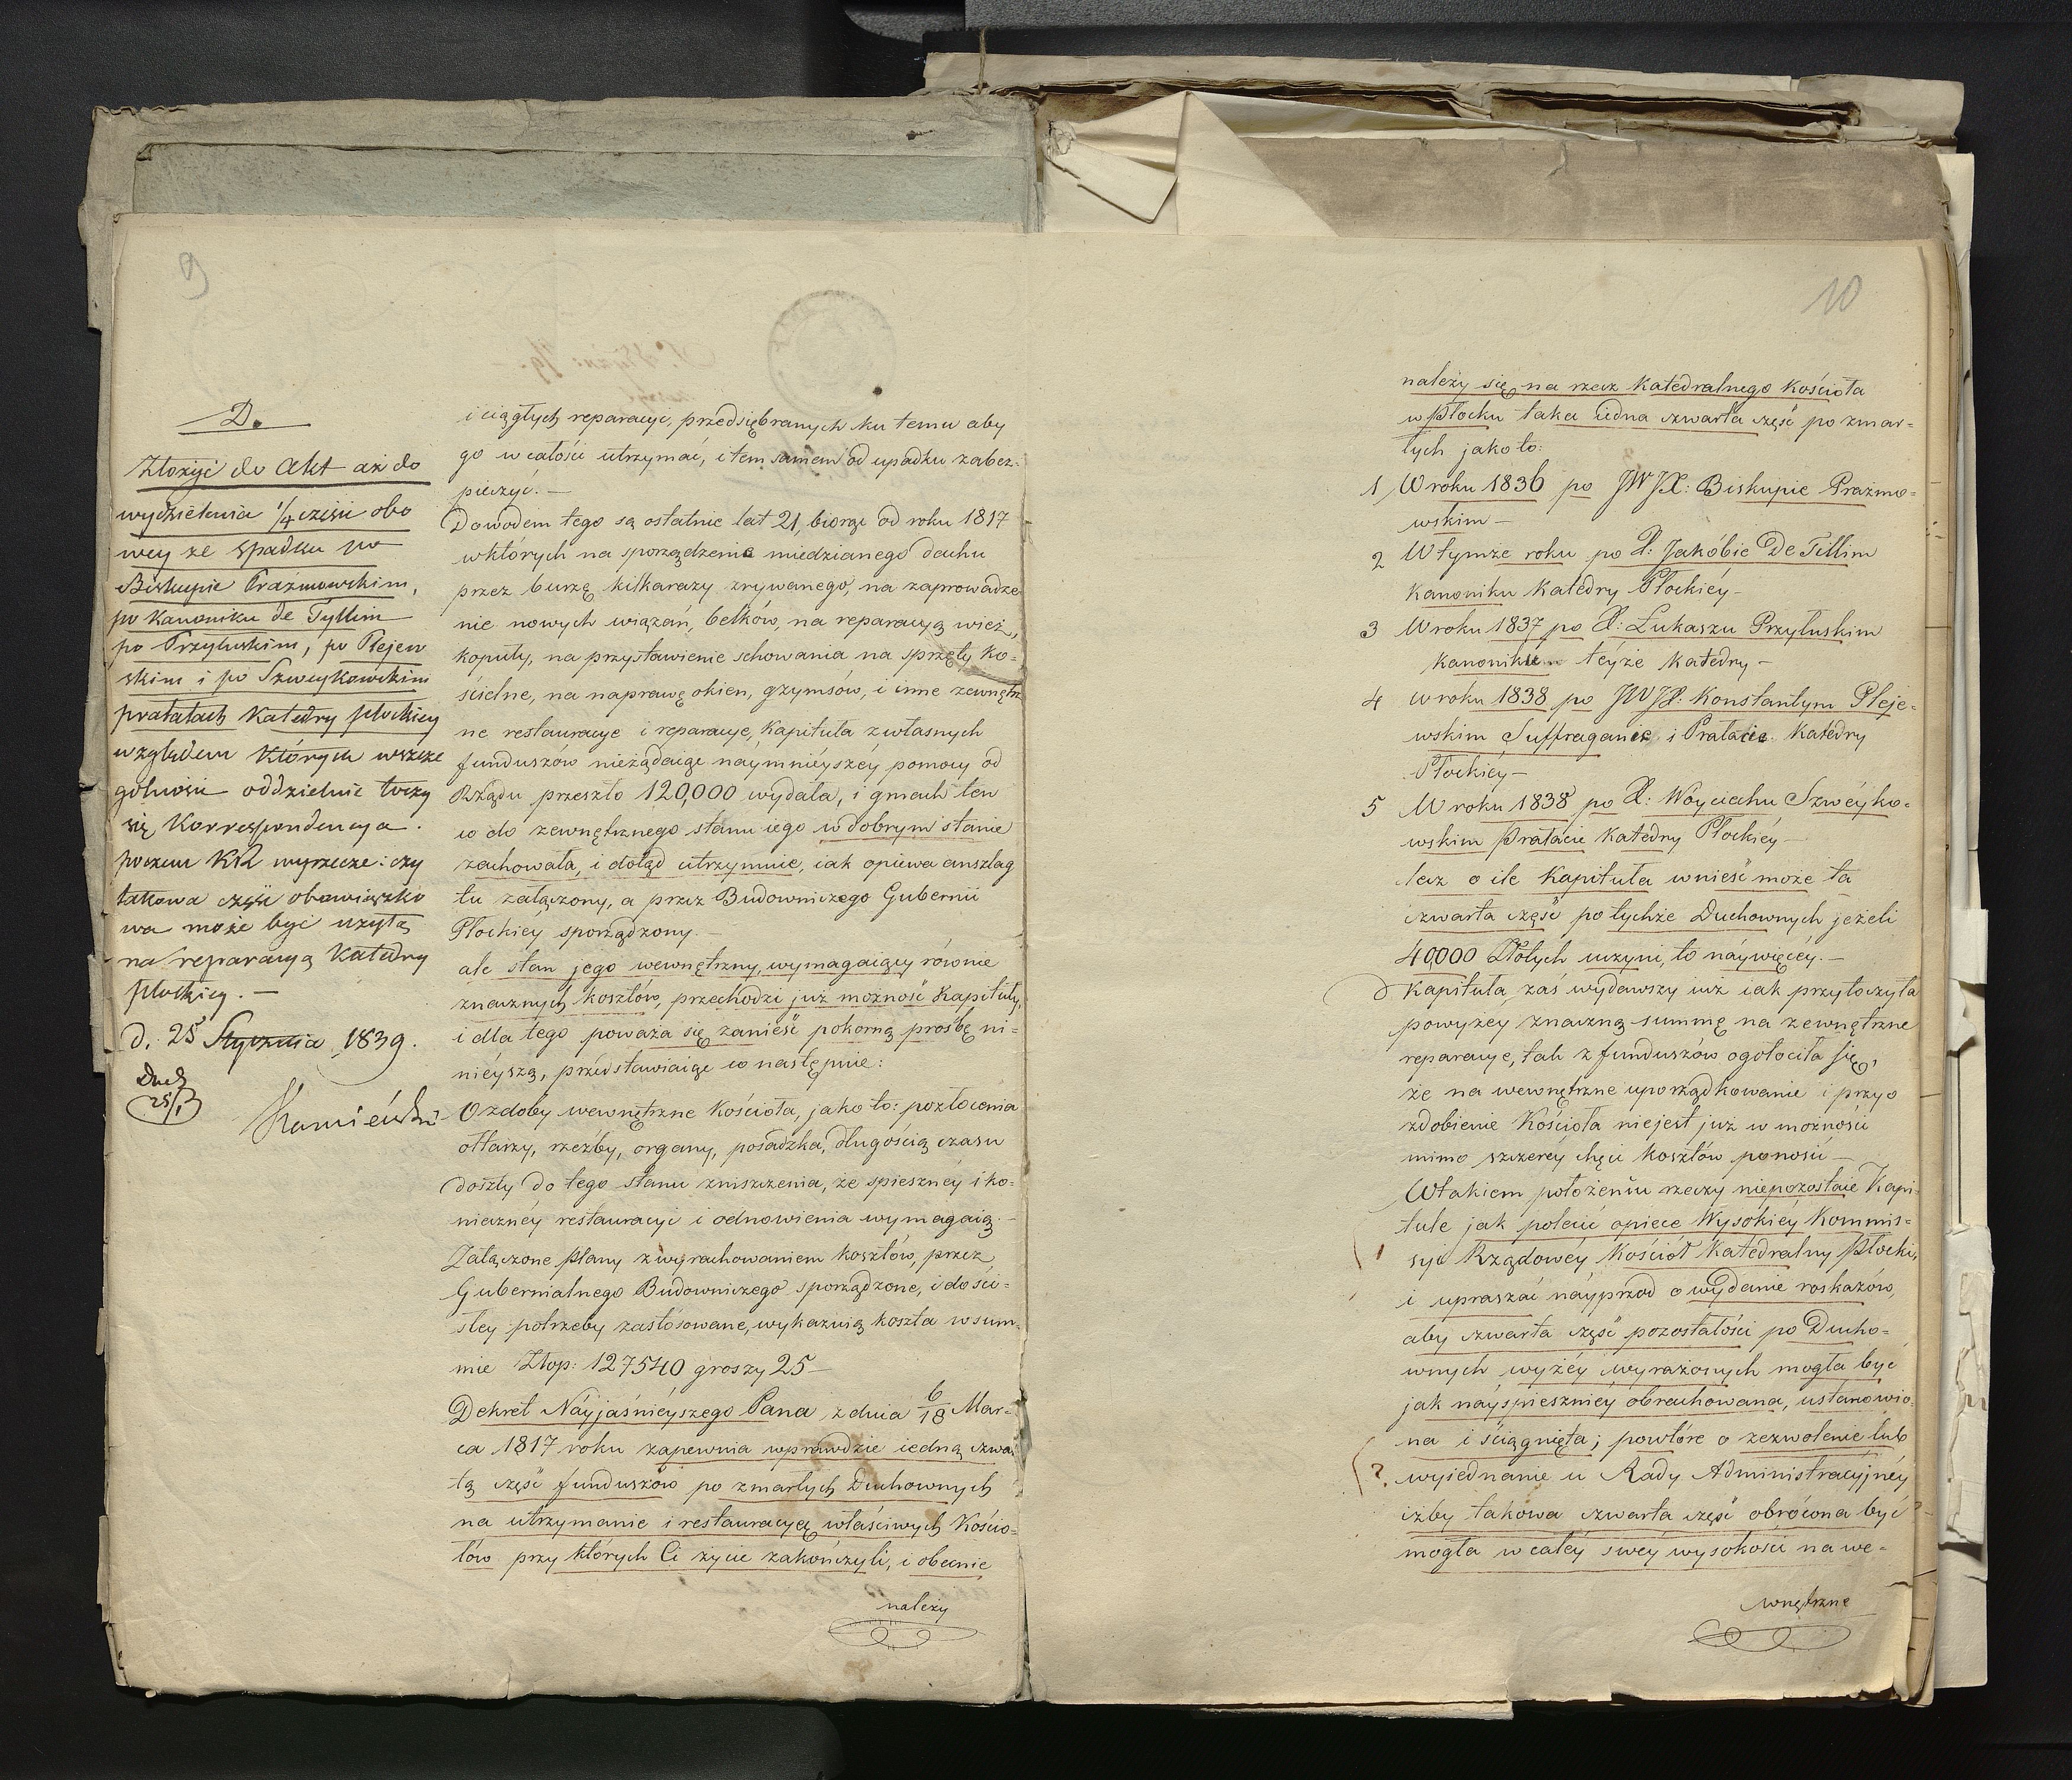 9
D.
Złożyć do Akt aż do
wydzielenia 1/4 części obo
wey ze spadku po
Biskupie Prażmowskim,
po Kanoniku de Tyllim
po Przyłuskim, po Plejew
skim i po Szweykowskim
prałatach Katedry płockiey
względem których wszcze
gólności oddzielnie toczy
się Korrespondencya.
poczem KR wyrzecze: czy
takowa część obowiązko
wa może być użytą
na reparacyą Katedry
płockiey. —
d. 25 Stycznia 1839.
Duch
25/1
Kamieński
i ciągłych reparacyi, przedsiębranych ku temu aby
go w całości utrzymać, i tem samem od upadku zabez-
pieczyć. —
Dowodem tego są ostatnie lat 21, biorąc od roku 1817
w których na sporządzenie miedzianego dachu
przez burzę kilkarazy zrywanego, na zaprowadze-
nie nowych wiązań, belków, na reparacyą wież,
kopuły, na przystawienie schowania na sprzęty ko-
ścielne, na naprawę okien, gzymsów, i inne zewnętrz
ne restauracye i reparacye, Kapituła z własnych
funduszów nieżądaiąc náymnieyszéy pomocy od
Rządu przeszło 120,000 wydała, i gmach ten
co do zewnętrznego stanu iego w dobrym stanie
zachowała, i dotąd utrzymuie, iak opiewa anszlag
tu załączony, a przez Budowniczego Gubernii
Płockiéy sporządzony. —
ale stan jego wewnętrzny, wymagaiący równie
znacznych kosztów, przechodzi już możność Kapituły,
i dla tego poważa się zanieść pokorną prośbę ni-
niéyszą, przedstawiaiąc co następuie:
Ozdoby wewnętrzne Kościoła, jako to: pozłocenia
ołtarzy, rzeźby, organy, posadzka, długością czasu
doszły do tego stanu zniszczenia, że spieszney i ko-
nieczney restauracyi i odnowienia wymagaią. —
Załączone plany z wyrachowaniem kosztów, przez
Gubernialnego Budowniczego sporządzone, i do ści-
słey potrzeby zastósowane, wykazuią koszta w sum-
mie Złop: 127540 groszy 25 —
Dekret Náyjaśniéyszego Pana z dnia 6/18 Mar-
ca 1817 roku zapewnia wprawdzie iedną czwar
tą część funduszów po zmarłych Duchownych
na utrzymanie i restauracyą właściwych Kościo-
łów przy których Ci życie zakończyli, i obecnie
należy
10
należy się na rzecz Katedralnego Kościoła
w Płocku taka iedna czwarta część po zmar-
łych jako to:
1, W roku 1836 po JWJX: Biskupie Prażmo-
wskim —
2 W tymże roku po X: Jakóbie De Tillim
Kanoniku Katedry Płockiéy —
3 W roku 1837 po X: Łukaszu Przyłuskim
Kanoniku téyże Katedry —
4 W roku 1838 po JWJX: Konstantym Pleje-
wskim Suffraganie i Prałacie Katedry
Płockiéy —
5 W roku 1838 po X: Woyciechu Szwéyko-
wskim Prałacie Katedry Płockiéy —
lecz o ile Kapituła wnieść może ta
czwarta część po tychże Duchownych jeżeli
40,000 Złotych uczyni, to náywięcéy. —
Kapituła zaś wydawszy iuż iak przytoczyła
powyżey znaczną summę na zewnętrzne
reparacye, tak z funduszów ogołociła się,
że na wewnętrzne uporządkowanie i przyo
zdobienie Kościoła niejest już w możności
mimo szczeréy chęci kosztów ponosić —
W takiem położeniu rzeczy niepozostaie Kapi-
tule jak polecić opiece Wysokiéy Kommis-
syi Rządowéy Kościół Katedralny Płocki,
i upraszać náyprzod o wydanie roskazów,
aby czwarta część pozostałości po Ducho-
wnych wyżéy wyrażonych mogła być
jak náyspieszniéy obrachowana, ustanowio-
na i ściągnięta; powtóre o zezwolenie lub
wyiednanie u Rady Administracyjnéy
iżby takowa czwarta część obrócona być
mogła w całéy swéy wysokości na we-
wnętrzne